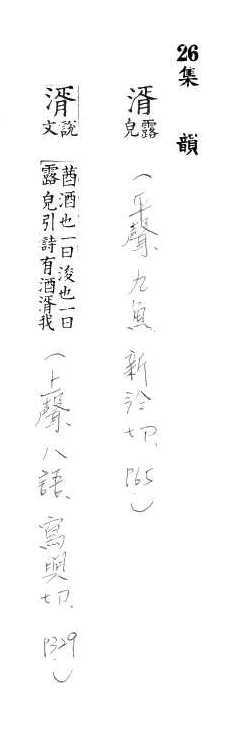 26集 韻
湑露皃(平聲、九魚 新於切、P65)
湑說文茜酒也一曰浚也一曰露皃引詩有酒湑我(上聲、八語、寫與切、P329)